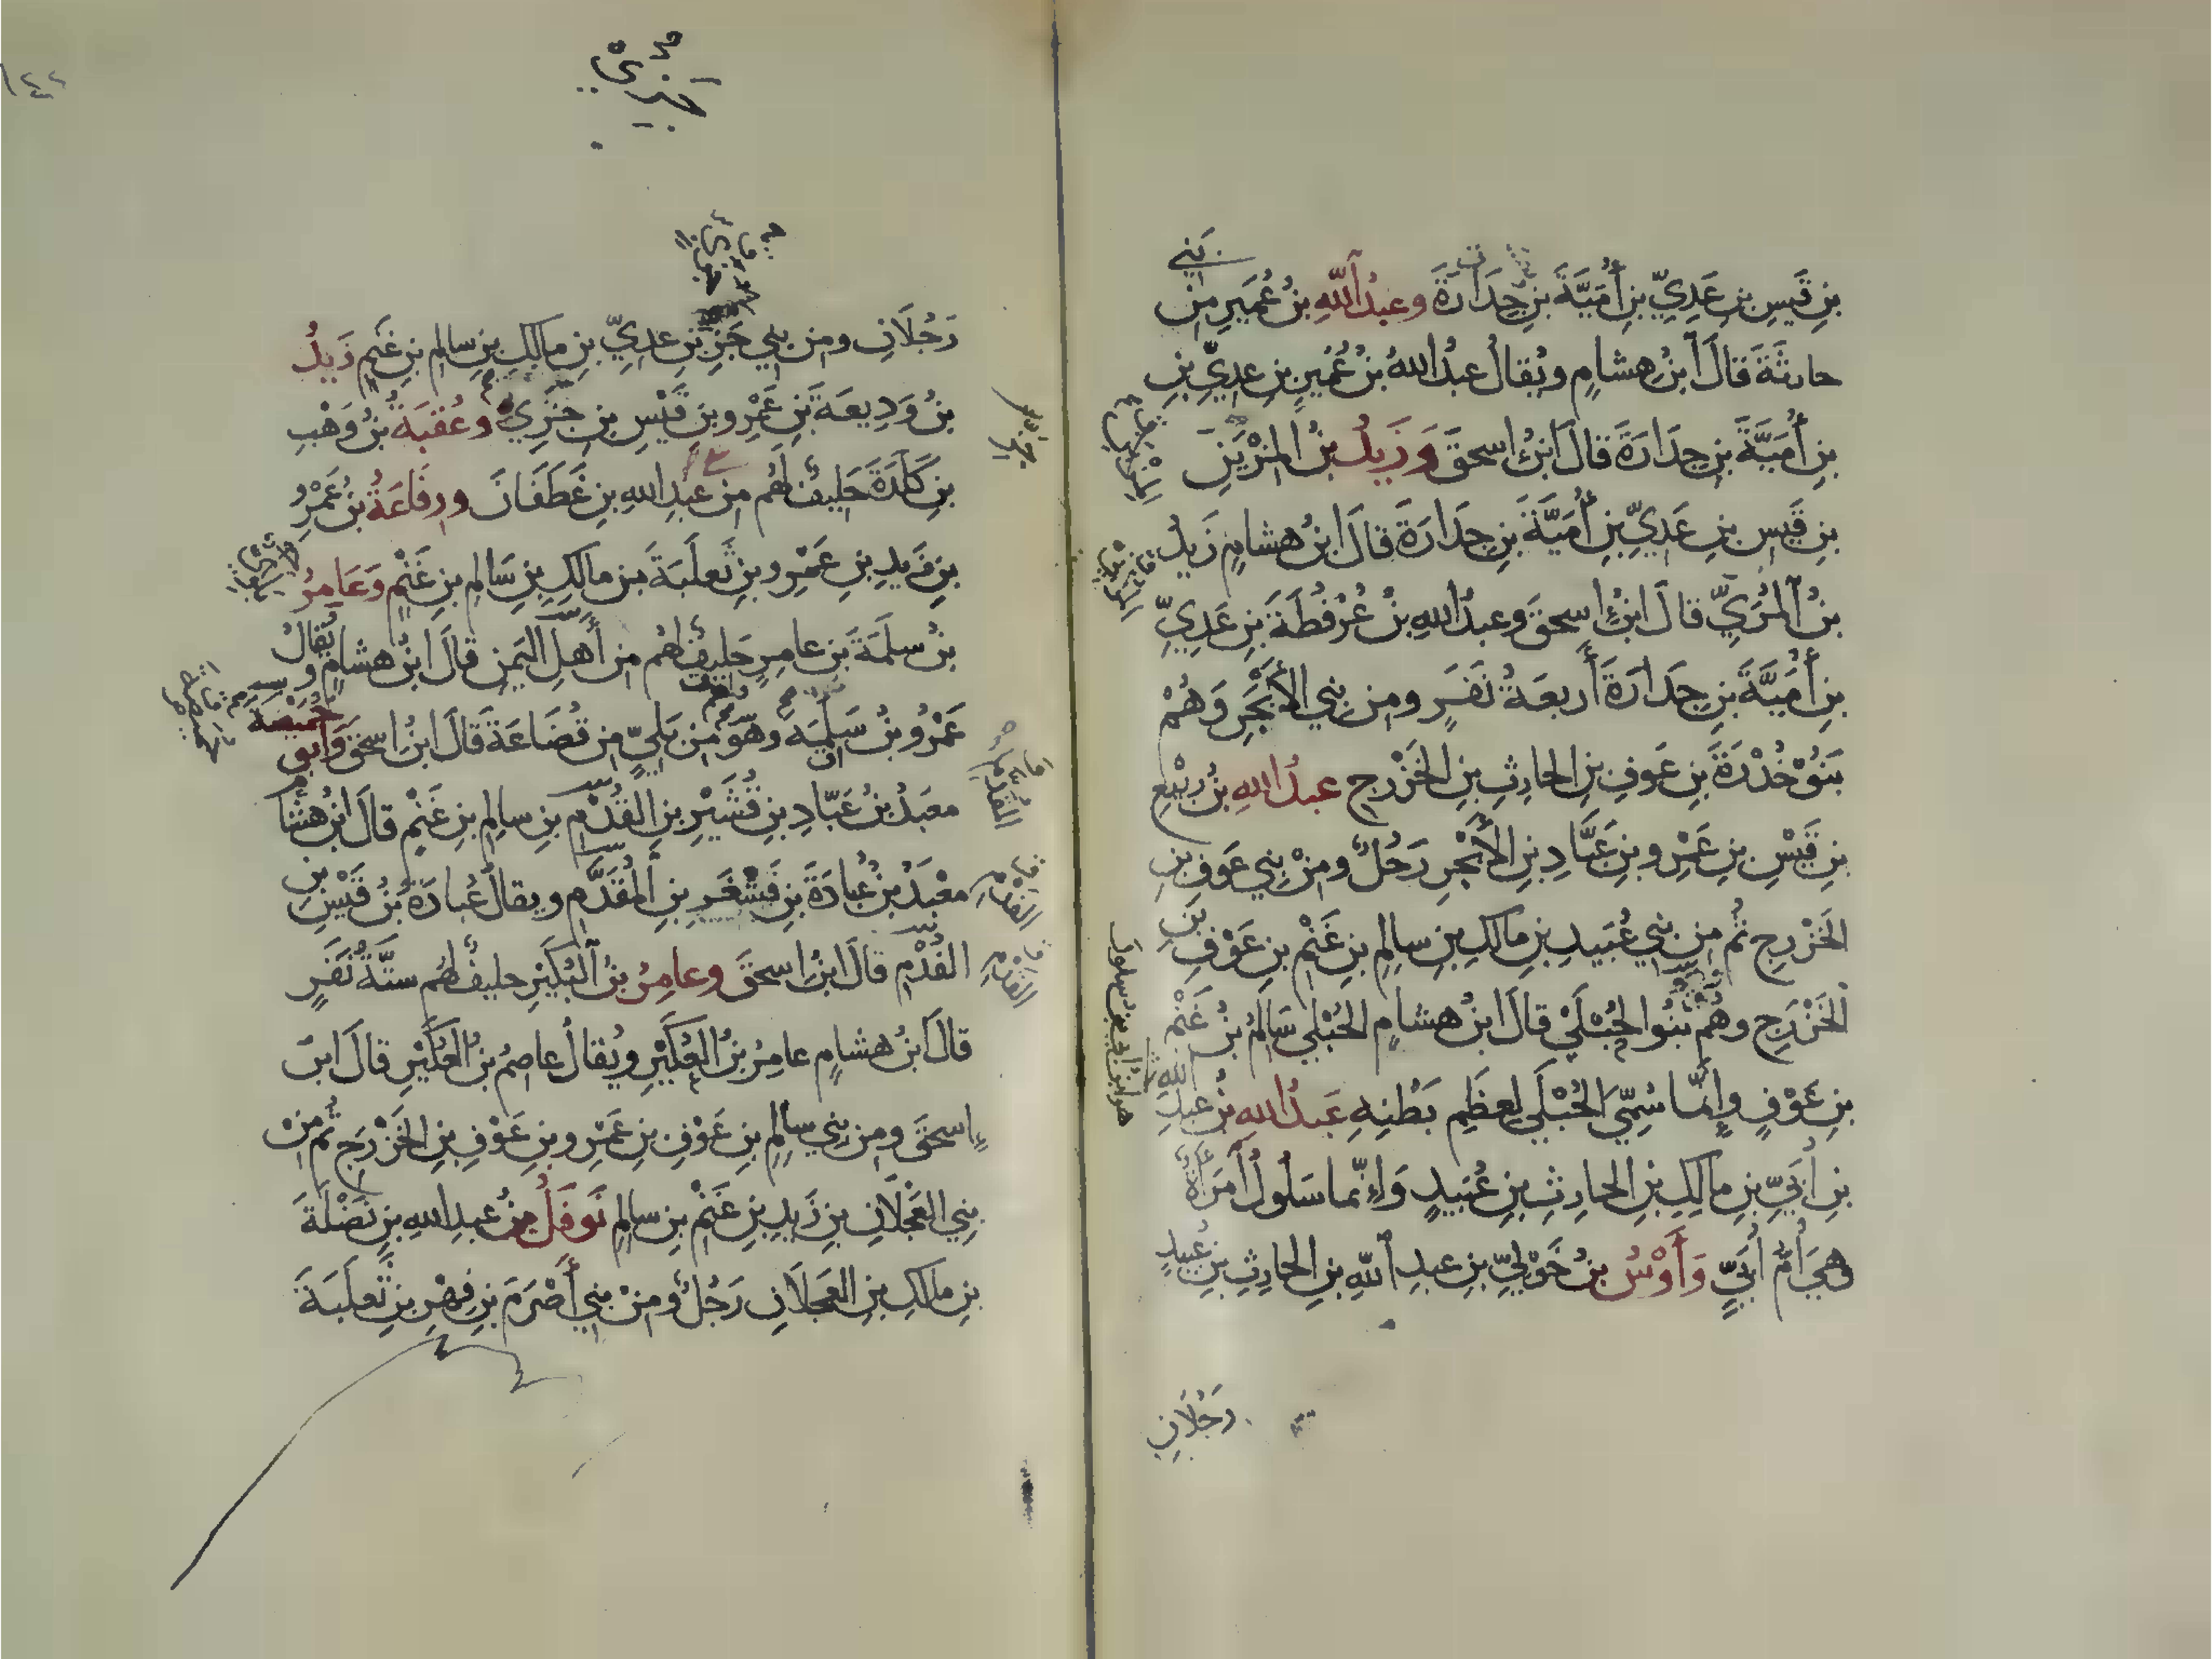 بني
بنِ قَيسِ بنِ عَدِيِّ بنِ أُمَيَّةَ بنِ جِدَارَةَ وعبدُ اللهِ بنُ عُمَيرٍ مِن
حارثَةَ قالَ ابنُ هشامٍ ويُقالُ عبدُ اللهِ بنُ عُمَيرِ بنِ عدِيِّ بنِ
بنِ أُمَيَّةَ بنِ جِدَارَةَ قالَ ابنُ إسحقَ وَزَيدُ بنُ المُزَيَّنِ
بنِ قَيسِ بنِ عَدِيِّ بنِ أُمَيَّةَ بنِ جِدَارَةَ قالَ ابنُ هشامٍ زَيدُ
بنُ المُرَيِّ قالَ ابنُ إسحقَ وعبدُ اللهِ بنُ عُرْفُطَةَ بنِ عَدِيِّ
بنِ أُمَيَّةَ بنِ جِدَارَةَ أَربعَةُ نَفَرٍ ومن بني الأَبْجَرِ وَهُمْ
بَنُوْ خُدْرَةَ بنِ عَوفِ بنِ الحارِثِ بنِ الخَزْرجِ عبدُ اللهِ بنُ رَبِيْعِ
بنِ قَيْسِ بنِ عَمْرِو بنِ عَبَّادِ بنِ الأَبْجرِ رَجُلٌ ومنْ بني عَوفِ بنِ
الخَزْرجِ ثُم من بني عُبَيدِ بنِ مالكِ بنِ سالِمِ بنِ غَنْمِ بنِ عَوْفِ بنِ
الخَزْرَجِ وهُمْ بَنُوا الحُبْلَيْ قالَ ابنُ هشامٍ الحُبْلي سَالمُ بنُ غَنْمِ
بنِ عَوْفٍ وإِنَّما سُمِّيَ الحُبْلَي لعِظَمِ بَطْنِهِ عَبدُ اللهِ بنُ عبدِ الله
بنِ أُبَيِّ بنِ مالِكِ بنِ الحارِثِ بنِ عُبَيدٍ وَإِنَّما سَلُولُ امْرَأَةٌ
وهيَ أُمُّ أُبَيٍّ وَأَوْسُ بنُ خَوْلِيِّ بنِ عبدِ اللهِ بنِ الحارِثِ بنِ عُبيدٍ
رَجُلَانِ
هو ابنُ أُبيّ بن سلول
رَجُلَانِ ومن بني جَزءِ بنِ عدِيِّ بنِ مالكِ بنِ سالمِ بنِ غَنمٍ زَيدُ
بنُ وَدِيعَةَ بنِ عَمْرِو بنِ قَيْسِ بنِ جَزِيٍّ وعُقبَةُ بنُ وَهْبِ
بنِ كَلَدَةَ حَليفٌ لهُم من عبدِ اللهِ بنِ غَطَفَانَ ورِفَاعَةُ بنُ عَمْرِو
بنِ زَيدِ بنِ عَمْرِو بنِ ثَعلَبَةَ بنِ مالكِ بنِ سَالمِ بنِ غَنْمٍ وَعَامِرُ
بنُ سلَمَةَ بنِ عامِرٍ حَليفٌ لهُم من أَهلِ اليَمَنِ قالَ ابنُ هشامٍ ويُقالُ
عَمْرُو بنُ سَلَمَةَ وهُوَ مِن بَلِيٍّ من قُضَاعَةَ قالَ ابنُ إسحقَ وأبو حُمَيْضَةَ
معبَدُ بنُ عَبّادِ بنِ قُشَيْرِ بنِ القُدْمِ بنِ سالِمِ بنِ غَنْمٍ قالَ ابنُ هشام
معْبَدُ بنُ عُبادَةَ بنِ قَشْغَرِ بنِ المُقَدَّمِ ويقالُ عُبادَةَ بنُ قَيْسِ بن
القُدْمِ قالَ ابنُ إسحقَ وعامِرُ بنُ البُكَيْرِ حليفٌ لهُم ستَّةُ نَفَرٍ
قالَ ابنُ هشامٍ عامِرُ بنُ العُكَيْرِ ويُقالُ عاصِمُ بنُ العُكَيْرِ قالَ ابنُ
إسحقَ ومن بني سالِمِ بنِ عَوْفِ بنِ عَمْرِو بنِ عَوْفِ بنِ الخَزْرَجِ ثُم منْ
بني العَجْلَانِ بنِ زَيدِ بنِ غَنْمِ بنِ سالِمٍ نَوفَلُ بنُ عبدِ اللهِ بنِ نَضْلَةَ
بنِ مالكِ بنِ العَجلَانِ رَجُلٌ ومنْ بني أَصْرَمَ بنِ فِهْرِ بنِ ثَعلَبَةَ